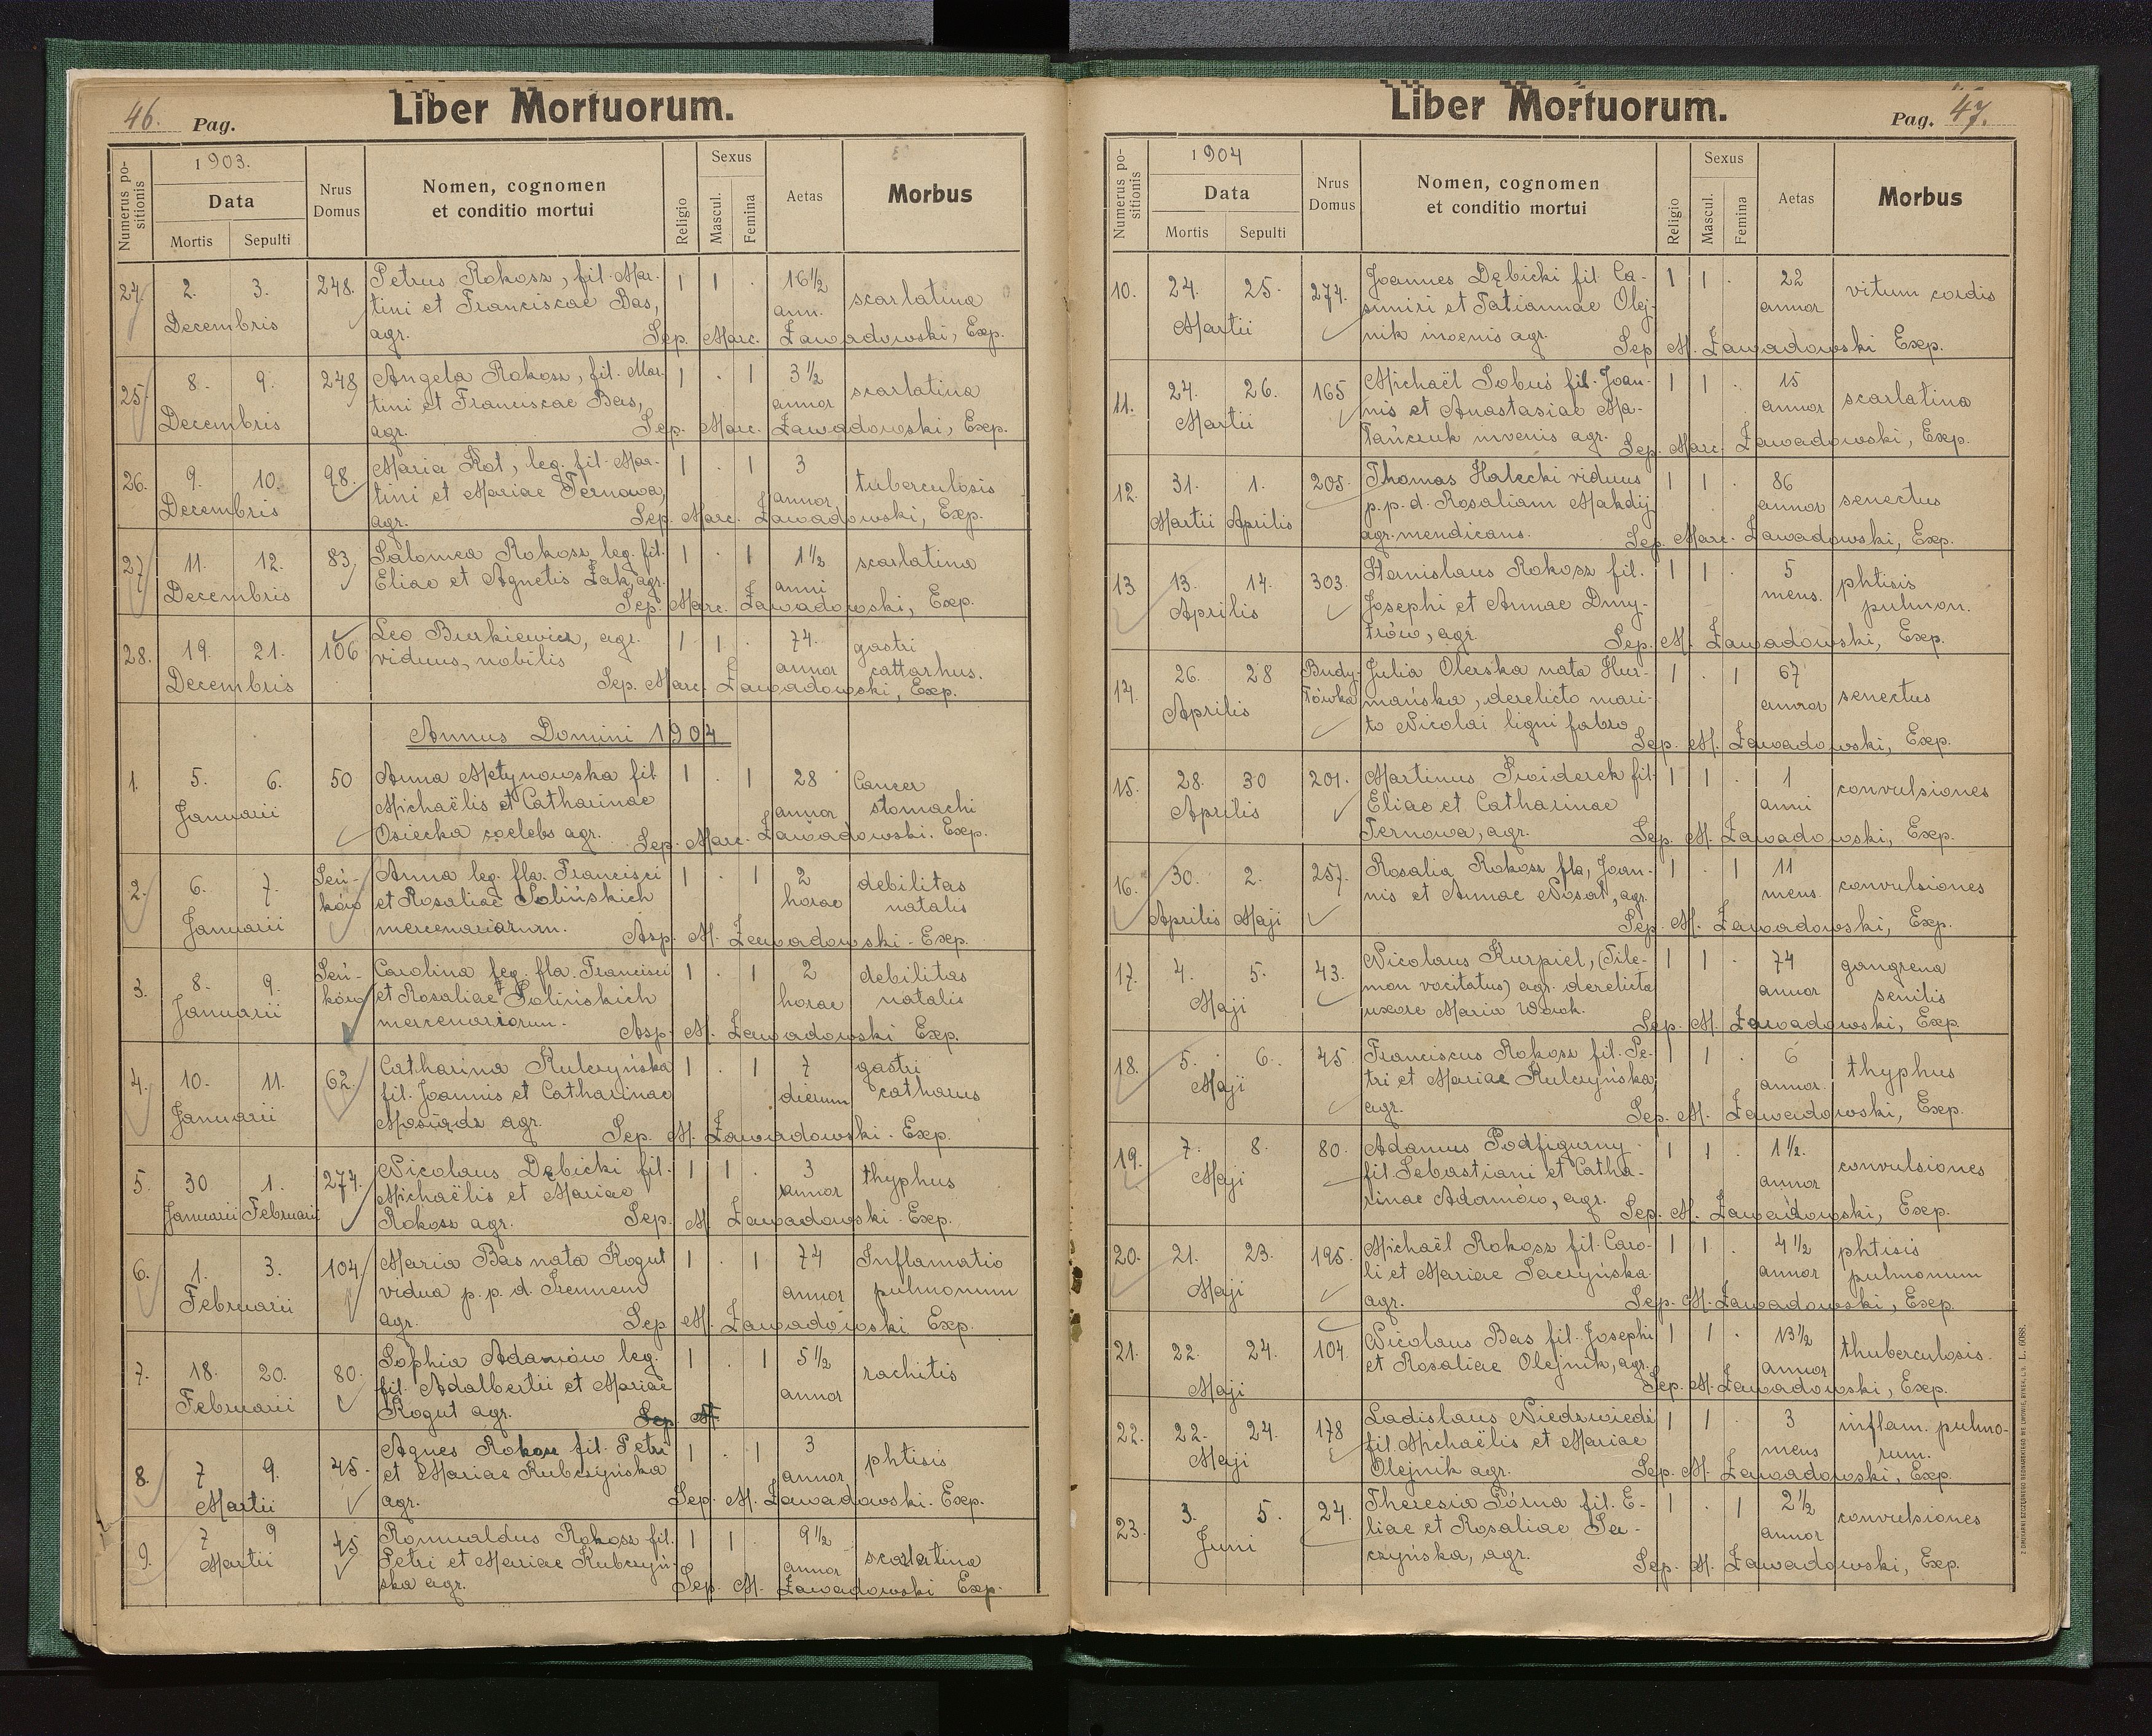 46. Pag. Liber Mortuorum.
Numerus positionis
1903.
Data
Mortis Sepulti
Nrus Domus
Nomen, cognomen et conditio mortui
Religio
Sexus
Mascul. Femina
Aetas
Morbus
24 2. 3. 248. Petrus Rokosz, fil. Mar- 1 1 . 16 1/2 scarlatina
Decembris tini et Franciscae Bas, ann.
agr. Sep. Marc. Zawadowski, Exp.
25 8. 9. 248 Angela Rokosz, fil. Mar- 1 . 1 3 1/2 scarlatina
Decembris tini et Franciscae Bas, annor
agr. Sep. Marc. Zawadowski, Exp.
26. 9. 10. 98. Maria Kot, leg. fil. Mar- 1 . 1 3 tuberculosis
Decembris tini et Mariae Ternowa, annor
agr. Sep. Marc. Zawadowski, Exp.
27 11. 12. 83 Salomea Rokosz leg. fil. 1 . 1 1 1/2 scarlatina
Decembris Eliae et Agnetis Żak, agr. anni
Sep. Marc. Zawadowski, Exp.
28. 19. 21. 106 Leo Burkiewicz, agr. 1 1 . 74. gastri
Decembris viduus, nobilis annor cattarhus.
Sep. Marc. Zawadowski, Exp.
Annus Domini 1904
1. 5. 6. 50 Anna Metynowska fil 1 . 1 28 Cancer
Januarii Michaëlis et Catharinae annor stomachi
Osiecka coelebs agr. Sep. Marc. Zawadowski. Exp.
2. 6. 7. Seń- Anna leg. fla. Francisci 1 . 1 2 debilitas
Januarii ków et Rosaliae Solińskich horae natalis
mercenariorum. Asp. M. Zawadowski - Exp.
3. 8. 9. Seń- Carolina leg. fla. Francisci 1 . 1 2 debilitas
Januarii ków et Rosaliae Solińskich horae natalis
mercenariorum. Asp. M. Zawadowski Exp.
4. 10. 11. 62. Catharina Kulczyńska 1 . 1 7 gastri
Januarii fil. Joannis et Catharinae dierum catharus
Mosiądz agr. Sep. M. Zawadowski - Exp.
5. 30 1. 274. Nicolaus Dębicki fil. 1 1 . 3 thyphus
Januarii Februarii Michaëlis et Mariae annor
Rokosz agr. Sep. M. Zawadowski - Exp.
6. 1. 3. 104. Maria Bas nata Kogut 1 . 1 74 Inflamatio
Februarii vidua p. p. d. Irennem annor pulmonum
agr. Sep. M. Zawadowski. Exp.
7. 18. 20. 80. Sophia Adamów leg. 1 . 1 5 1/2 rachitis
Februarii fil. Adalbertii et Mariae annor
Kogut agr. Sep M
8. 7 9. 45. Agnes Rokosz fil. Petri 1 . 1 3 phtisis
Martii et Mariae Kubczyńska annor
agr. Sep. M. Zawadowski - Exp.
9. 7 9 45 Romualdus Rokosz fil. 1 1 . 9 1/2 scarlatina
Martii Petri et Mariae Kubczyń- annor
ska agr. Sep. M. Zawadowski Exp.
Liber Mortuorum. Pag. 47.
Numerus positionis
1904
Data
Mortis Sepulti
Nrus Domus
Nomen, cognomen et conditio mortui
Religio
Sexus
Mascul. Femina
Aetas
Morbus
10. 24. 25. 274. Joannes Dębicki fil. Ca- 1 1 . 22 vitum cordis
Martii simiri et Tatiannae Olej- annor
nik iuvenis agr. Sep M. Zawadowski Exp.
11. 24. 26. 165 Michaël Sobuś fil. Joan- 1 1 . 15 scarlatina
Martii nis et Anastasiae Ma- annor
tańczuk iuvenis agr. Sep. Marc. Zawadowski, Exp.
12. 31. 1. 205. Thomas Halecki viduus 1 1 . 86 senectus
Martii Aprilis p. p. d. Rosaliam Makdij annor
agr. mendicans. Sep. Marc. Zawadowski, Exp.
13 13. 14. 303. Stanislaus Rokosz fil. 1 1 . 5 phtisis
Aprilis Josephi et Annae Dmy- mens. pulmon.
trów, agr. Sep. M. Zawadowski, Exp.
14. 26. 28 Budy- Julia Olerska nata Hur- 1 . 1 67 senectus
Aprilis łówka mańska, derelicto mari- annor
to Nicolai ligni fabro Sep. M. Zawadowski, Exp.
15. 28. 30 201. Martinus Świderek fil. 1 1 . 1 convulsiones
Aprilis Eliae et Catharinae anni
Ternowa, agr. Sep. M. Zawadowski, Exp.
16. 30. 2. 257. Rosalia Rokosz fla, Joan- 1 . 1 11 convulsiones
Aprilis Maji nis et Annae Nosal, agr. mens.
Sep. M. Zawadowski, Exp.
17 4. 5. 43. Nicolaus Kurpiel, (File- 1 1 . 74 gangrena
Maji mon vocitatus) agr. derelicta annor senilis
uxore Maria Wowk. Sep. M. Zawadowski, Exp.
18. 5. 6. 45 Franciscus Rokosz fil. Pe- 1 1 . 6 thyphus
Maji tri et Mariae Kulczyńska, annor.
agr. Sep. M. Zawadowski, Exp.
19. 7. 8. 80. Adamus Podfigurny 1 1 . 1 1/2. convulsiones
Maji fil. Sebastiani et Catha- annor
rinae Adamów, agr. Sep. M. Zawadowski, Exp.
20. 21. 23. 195. Michaël Rokosz fil. Caro- 1 1 . 4 1/2 phtisis
Maji li et Mariae Saczyńska annor pulmonum
agr. Sep. M. Zawadowski, Exp.
21. 22. 24. 104. Nicolaus Bas fil. Josephi 1 1 . 13 1/2 thuberculosis.
Maji et Rosaliae Olejnik, agr. annor
Sep. M. Zawadowski, Exp.
22. 22. 24. 178 Ladislaus Niedzwiedź 1 1 . 3 inflam. pulmo-
Maji fil. Michaëlis et Mariae mens rum.
Olejnik agr. Sep. M. Zawadowski, Exp.
23. 3. 5. 24. Theresia Górna fil. E- 1 . 1 2 1/2 convulsiones
Juni liae et Rosaliae Sa- annor
czyńska, agr. Sep. M. Zawadowski, Exp.